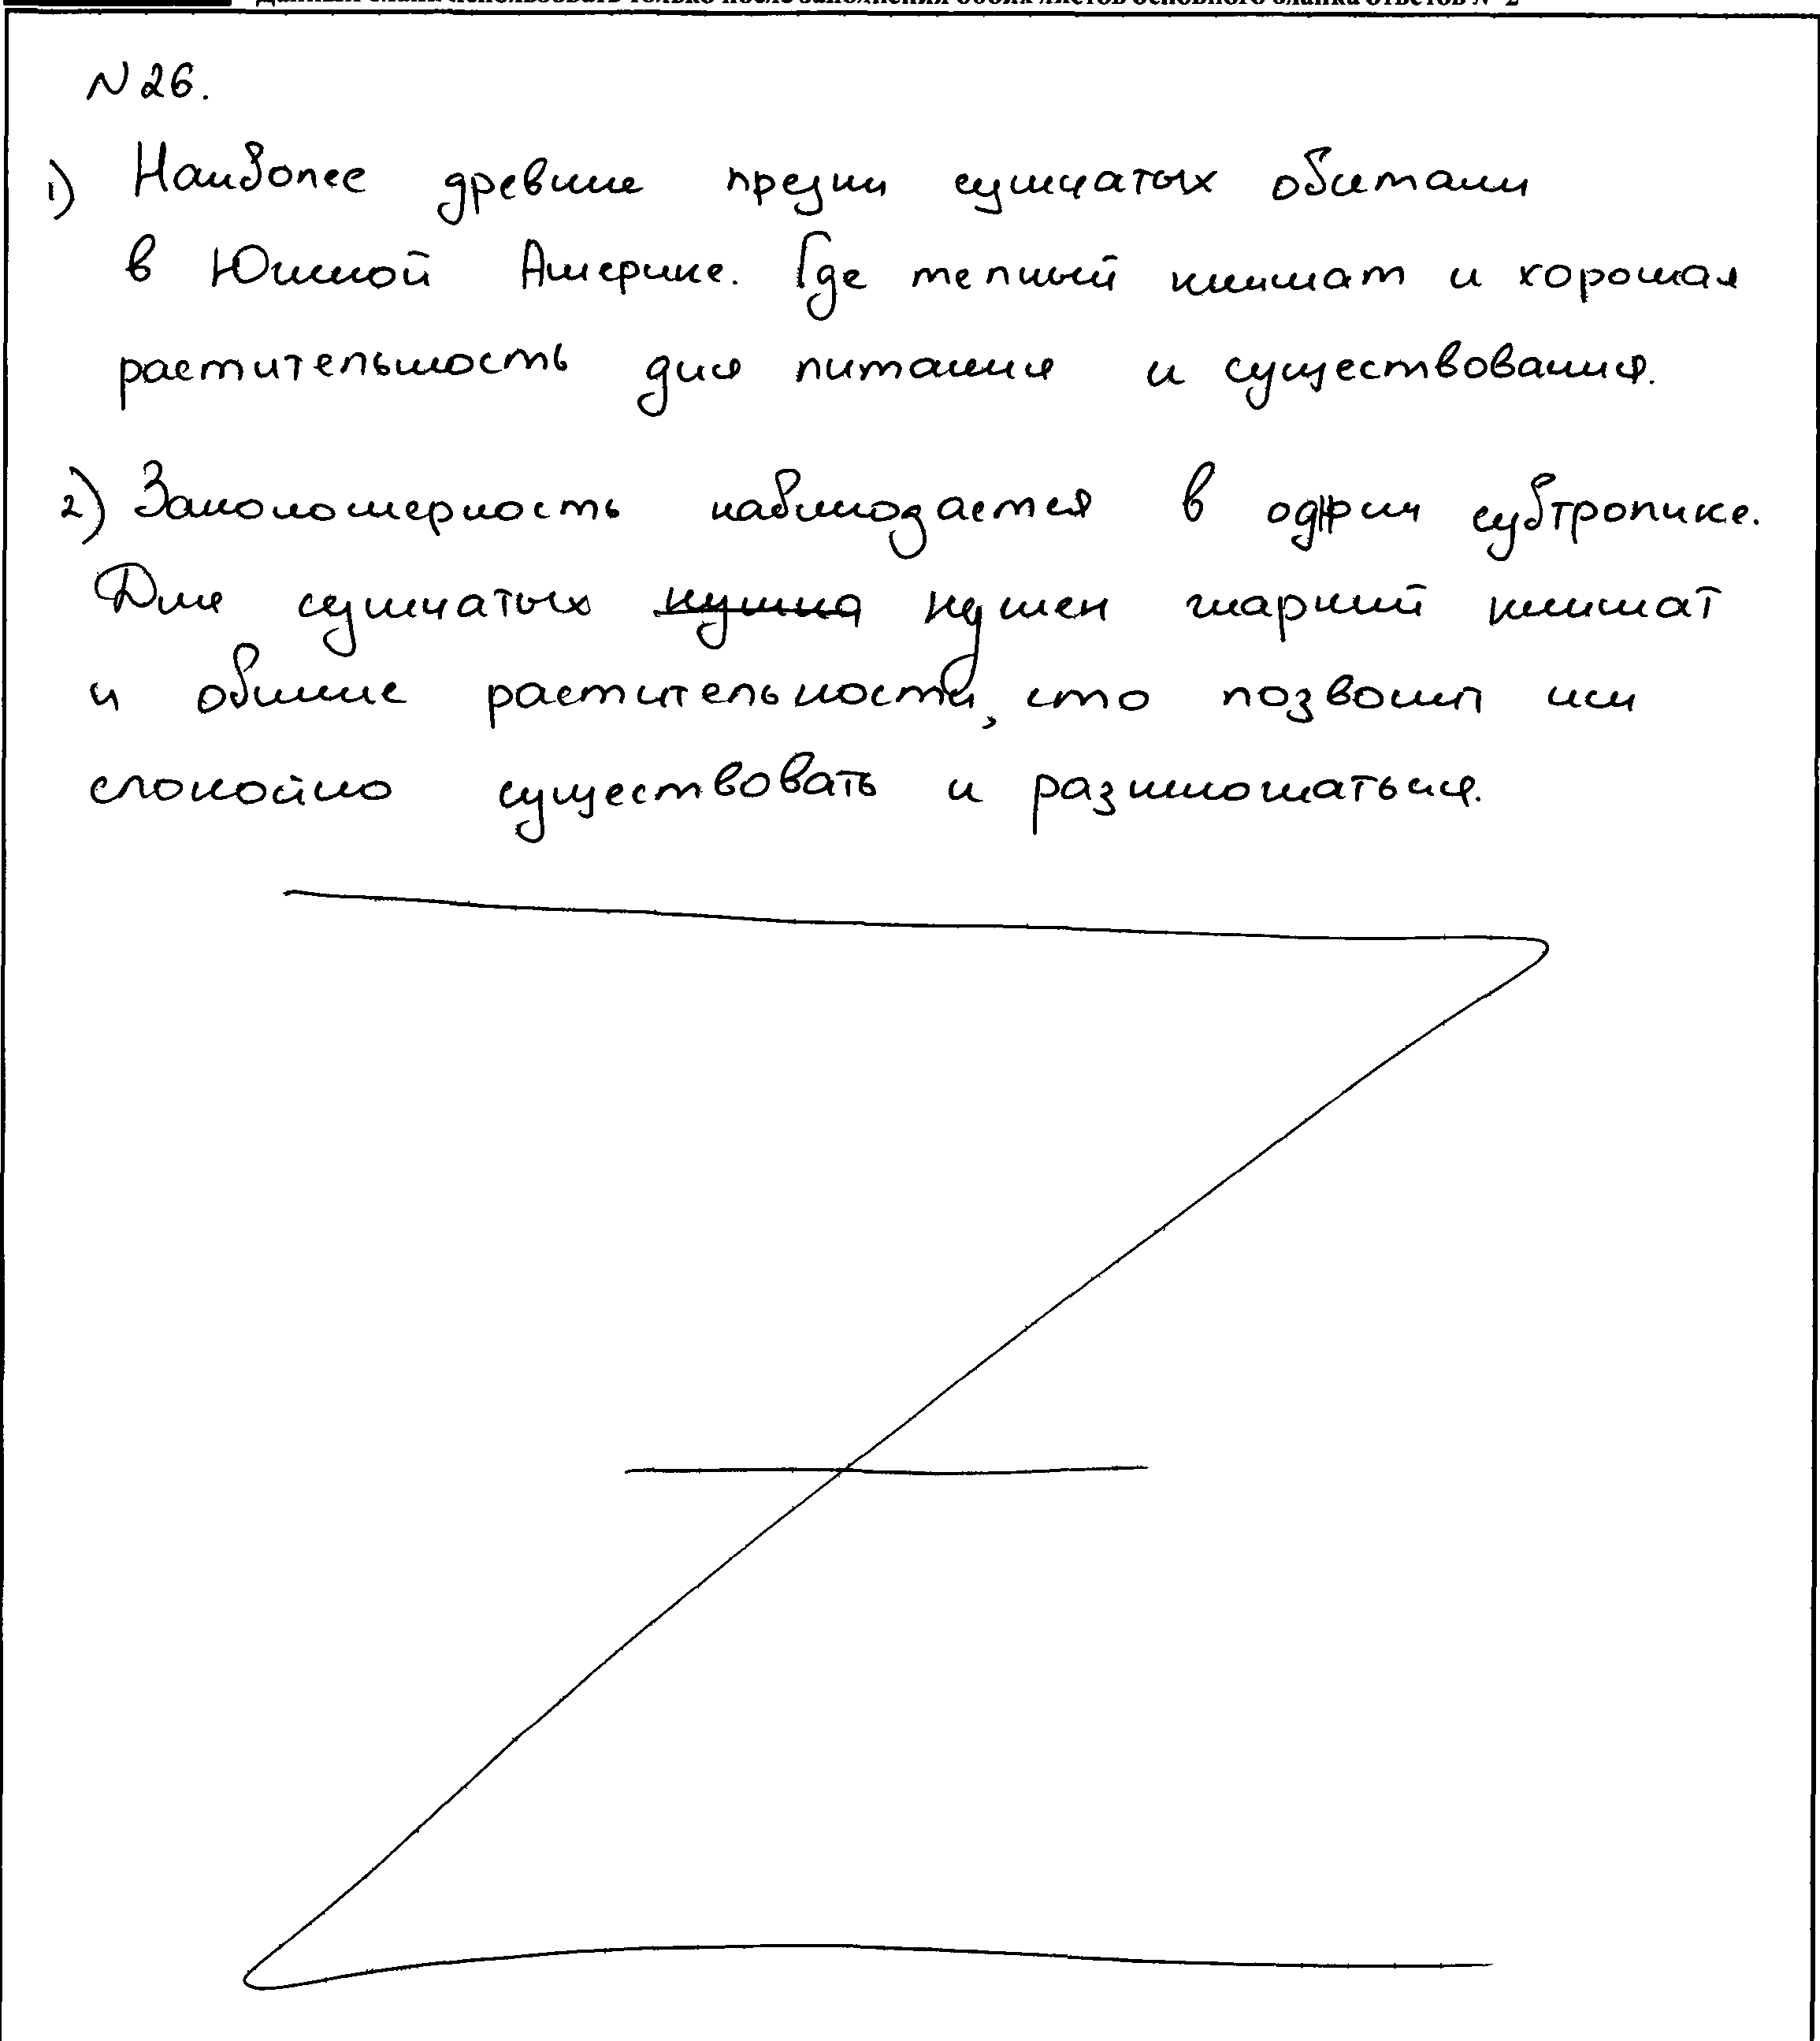 Данный бланк использовать только после заполнения обоих листов основного бланка ответов № 2
N 26.
1) Наиболее древние предки сумчатых обитали
в Южной Америке. Где теплый климат и хорошая
растительность для питания и существования.
2) Закономерность наблюдается в субтропике.
Для сумчатых нужна нужен жаркий климат
и обилие растительности, что позволит им
спокойно существовать и размножаться.